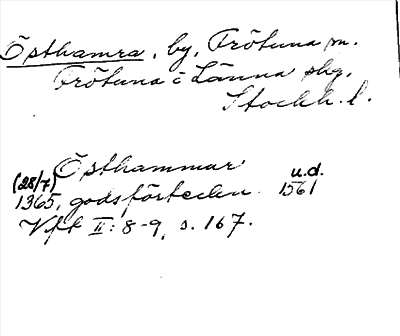 Östhamra, by, Frötuna sn.
Frötuna o Länna skg,
Stockh. l.
Östhammar
(28/7) u.d.
1365, godsförteckn. 1561
Vft II: 8-9, s. 167.